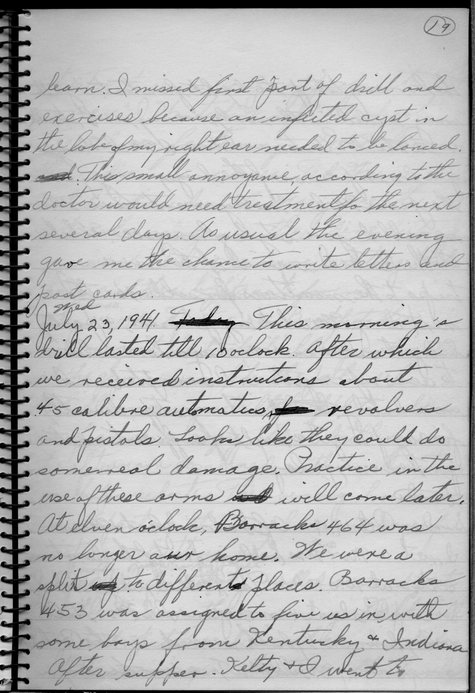 19
learn. I missed first part of drill and
exercises because an infected cyst in
the lobe of my right ear needed to be lanced.
This small annoyance, according to the
doctor would need treatment for the next
several days. As usual the evening
gave me the chance to write letters and
post cards.
Wed
July 23, 1941 Today This morning's
drill lasted till 10 oclock. After which
we received instructions about
45 calibre automatics, revolvers
and pistols. Looks like they could do
some real damage. Practice in the
use of these arms will come later.
At elven o'clock, Barracks 464 was
no longer our home. We were a
split to different places. Barracks
453 was assigned to five us in with
some boys from Kentucky & Indiana
After supper. Kelty & I went to